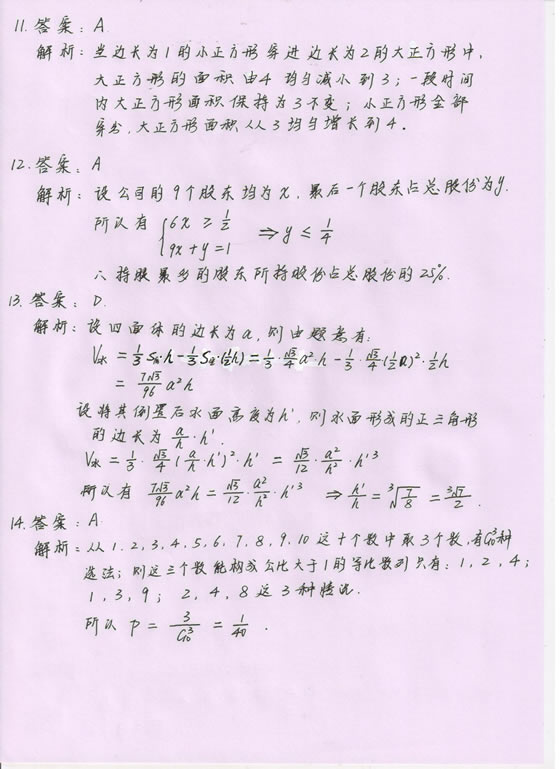 11. 答案：A.
解析：当边长为1的小正方形穿进边长为2的大正方形中，
大正方形的面积由4均匀减小到3；一段时间
内大正方形面积保持为3不变；小正方形全部
穿出，大正方形面积从3均匀增长到4.
12. 答案：A
解析：设公司的9个股东均为x，最后一个股东占总股份为y.
所以有 {6x ≥ 1/2, 9x+y=1 ⇒ y ≤ 1/4
∴持股最多的股东所持股份占总股份的25%.
13. 答案：D.
解析：设四面体的边长为a，则由题意有：
V水 = 1/3 S底·h - 1/3 S·(1/2h) = 1/3·√3/4 a²·h - 1/3·√3/4(1/2 a)²·1/2h
= 7√3/96 a²h
设将其倒置后水面高度为h'，则水面形成的正三角形
的边长为 a/h·h'.
V水 = 1/3·√3/4(a/h·h')²·h' = √3/12·a²/h²·h'³
所以有 7√3/96 a²h = √3/12·a²/h²·h'³ ⇒ h'/h = ³√(7/8) = ³√7/2.
14. 答案：A.
解析：从1,2,3,4,5,6,7,8,9,10这十个数中取3个数，有C₁₀³种
选法；则这三个数能构成公比大于1的等比数列只有：1，2，4；
1，3，9； 2，4，8这3种情况.
所以 P = 3/C₁₀³ = 1/40.